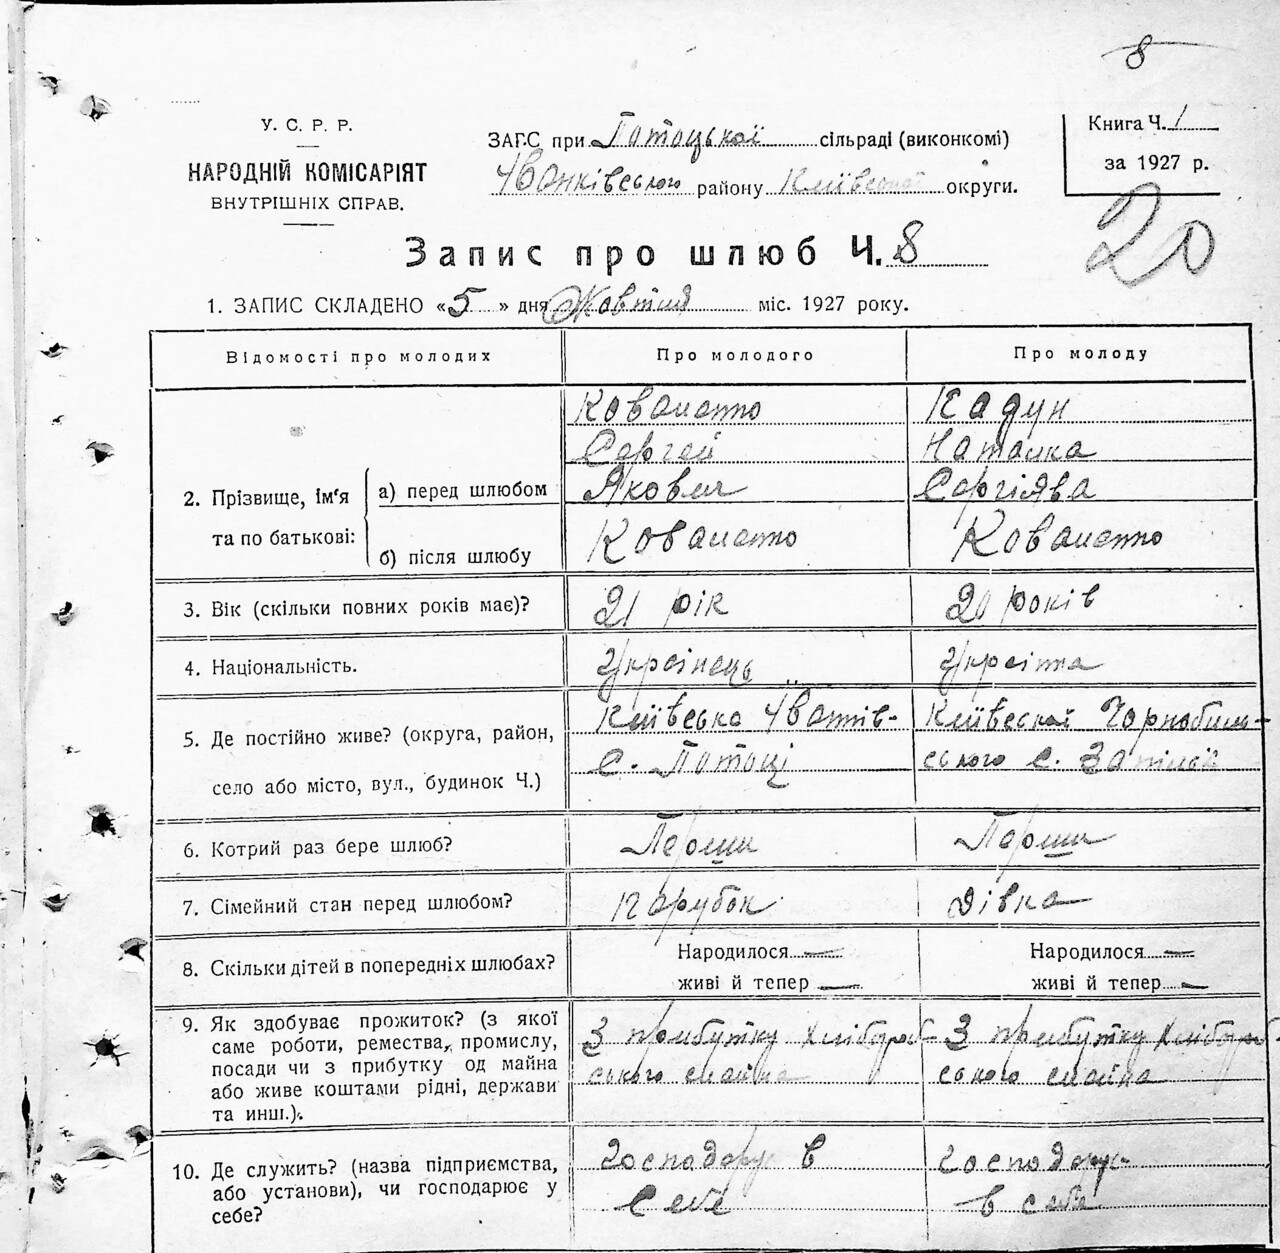 8
У. С. Р. Р.
НАРОДНІЙ КОМІСАРІЯТ
ВНУТРІШНІХ СПРАВ.
ЗАГС при Потоцької сільраді (виконкомі)
Іванківського району Київської округи.
Книга Ч. 1
за 1927 р.
20
Запис про шлюб Ч. 8
1. ЗАПИС СКЛАДЕНО «5» дня Жовтня міс. 1927 року.
Відомості про молодих Про молодого Про молоду
Коваленко Кадун
Сергей Наталка
2. Прізвище, ім'я та по батькові: а) перед шлюбом Якович Сергіява
б) після шлюбу Коваленко Коваленко
3. Вік (скільки повних років має)? 21 рік 20 років
4. Національність. Українець Українка
5. Де постійно живе? (округа, район, Київська Іванків- Київскої Чорнобиль-
село або місто, вул., будинок Ч.) с. Потоці ського с.
6. Котрий раз бере шлюб? Перши Перши
7. Сімейний стан перед шлюбом? Парубок Дівка
8. Скільки дітей в попередніх шлюбах? Народилося — Народилося —
живі й тепер — живі й тепер —
9. Як здобуває прожиток? (з якої
саме роботи, ремества, промислу, З прибутку хлібороб- З прибутку хлібороб-
посади чи з прибутку од майна
або живе коштами рідні, держави ського майна ського майна
та инш.).
10. Де служить? (назва підприємства, Господарує в Господарує
або установи), чи господарює у себе в себе
себе?